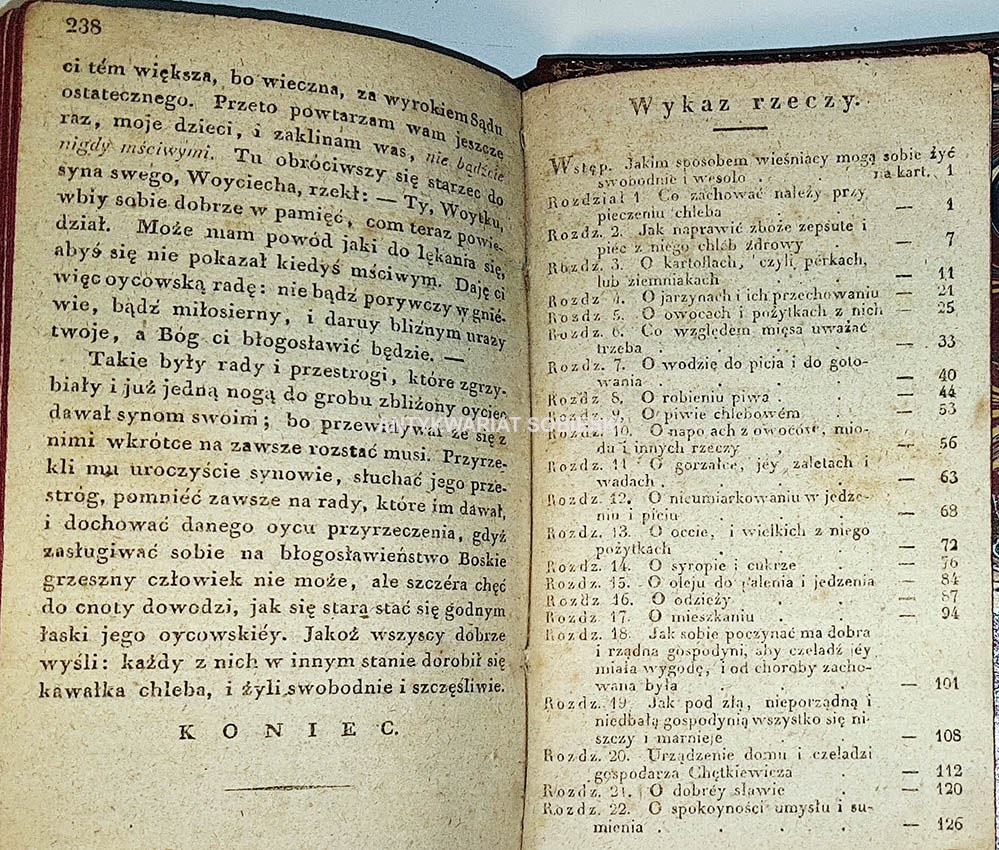 238
ci tém większa, bo wieczna, za wyrokiem Sądu
ostatecznego. Przeto powtarzam wam jeszcze
raz, moje dzieci, i zaklinam was, nie bądźcie
nigdy mściwymi. Tu obróciwszy się starzec do
syna swego, Woyciecha, rzekł: — Ty, Woytku,
wbiy sobie dobrze w pamięć, com teraz powie-
dział. Może mam powód jaki do lękania się,
abyś się nie pokazał kiedyś mściwym. Daję ci
więc oycowską radę: nie bądź porywczy w gnié-
wie, bądź miłosierny, i daruy bliźnym urazy
twoje, a Bóg ci błogosławić będzie. —
Takie były rady i przestrogi, które zgrzy-
biały i już jedną nogą do grobu zbliżony oyciec
dawał synom swoim; bo przewidywał że się z
nimi wkrótce na zawsze rozstać musi. Przyrze-
kli mu uroczyście synowie, słuchać jego prze-
stróg, pomniéć zawsze na rady, które im dawał,
i dochować danego oycu przyrzeczenia, gdyż
zasługiwać sobie na błogosławieństwo Boskie
grzeszny człowiek nie może, ale szczéra chęć
do cnoty dowodzi, jak się stara stać się godnym
łaski jego oycowskiéy. Jakoż wszyscy dobrze
wyśli: każdy z nich w innym stanie dorobił się
kawałka chleba, i żyli swobodnie i szczęśliwie.
KONIEC.
Wykaz rzeczy.
Wstęp. Jakim sposobem wieśniacy mogą sobie żyć
swobodnie i wesoło . . na kart. 1
Rozdział 1 Co zachować należy przy
pieczeniu chleba . . — 1
Rozdz. 2. Jak naprawić zboże zepsute i
piec z niego chléb zdrowy . — 7
Rozdz. 3. O kartoflach, czyli pérkach,
lub ziemniakach . . — 11
Rozdz 4. O jarzynach i ich przechowaniu — 21
Rozdz. 5. O owocach i pożytkach z nich — 25
Rozdz. 6. Co względem mięsa uważać
trzeba . . . . — 33
Rozdz. 7. O wodzie do picia i do goto-
wania . . . . — 40
Rozdz 8. O robieniu piwa . . — 44
Rozdz. 9. O piwie chlebowém . — 53
Rozdz. 10. O napojach z owoców, mio-
du i innych rzeczy . . — 56
Rozdz. 11 O gorzałce, jéy zaletach i
wadach . . . . — 63
Rozdz. 12. O nieumiarkowaniu w jedze-
niu i piciu . . . — 68
Rozdz. 13. O occie, i wielkich z niego
pożytkach . . . — 72
Rozdz. 14. O syropie i cukrze . — 76
Rozdz. 15. O oleju do palenia i jedzenia — 84
Rozdz 16. O odzieży . . — 87
Rozdz. 17. O mieszkaniu . . — 94
Rozdz. 18. Jak sobie poczynać ma dobra
i rządna gospodyni, aby czeladź jéy
miała wygodę, i od choroby zacho-
wana była . . . — 101
Rozdz. 19. Jak pod złą, nieporządną i
niedbałą gospodynią wszystko się ni-
szczy i marnieje . . — 108
Rozdz. 20. Urządzenie domu i czeladzi
gospodarza Chętkiewicza . — 112
Rozdz. 21. O dobréy sławie . — 120
Rozdz. 22. O spokoyności umysłu i su-
mienia . . . . — 126
ANTYKWARIAT SOBIESKI